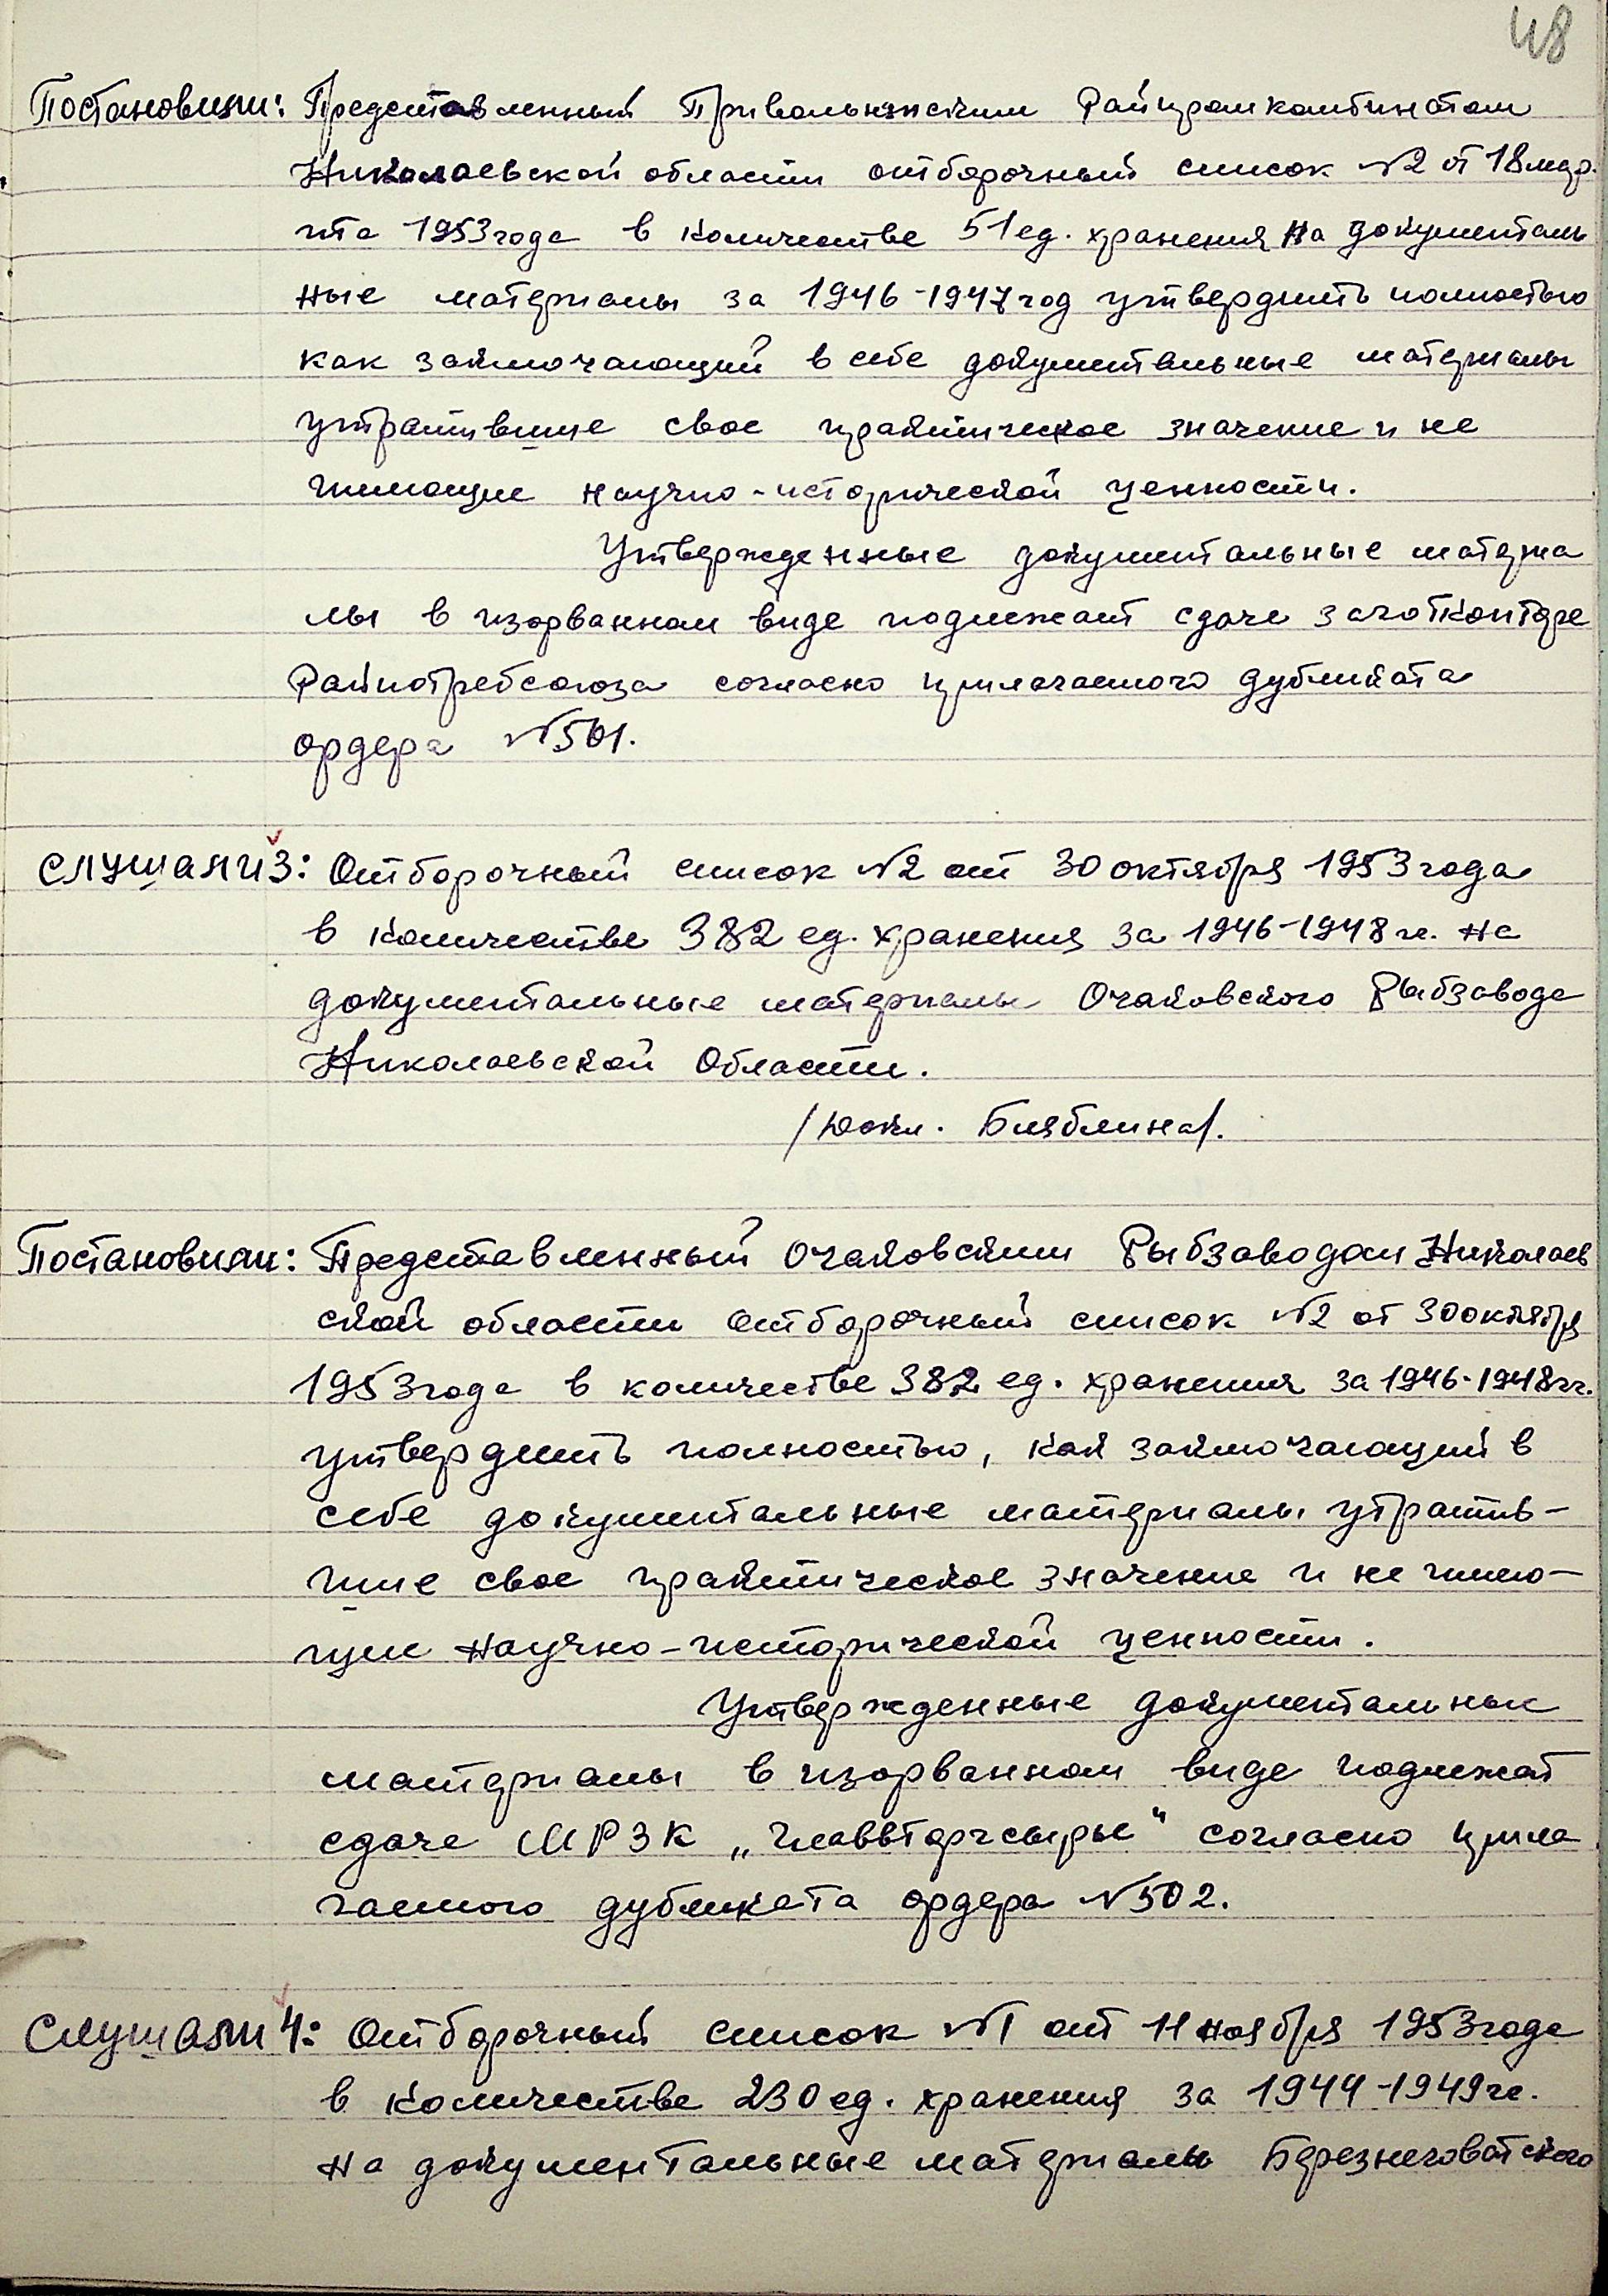 48
Постановили: Представленный Привольнянским Райпромкомбинатом
Николаевской области отборочный список №2 от 18 мар-
та 1953 года в количестве 51 ед. хранения на документаль
ные материалы за 1946-1947 год утвердить полностью
как заключающий в себе документальные материалы
утратившие свое практическое значение и не
имеющие научно-исторической ценности.
Утвержденные документальные материа
лы в изорванном виде подлежат сдаче заготконторе
Райпотребсоюза согласно прилагаемого дубликата
ордера №501.
Слушали 3: Отборочный список №2 от 30 октября 1953 года
в количестве 382 ед. хранения за 1946-1948 гг. на
документальные материалы Очаковского Рыбзавода
Николаевской Области.
/Докл. Бляблина/.
Постановили: Представленный Очаковским Рыбзаводом Николаев
ской области отборочный список №2 от 30 октября
1953 года в количестве 382 ед. хранения за 1946-1948 гг.
утвердить полностью, как заключающий в
себе документальные материалы утратив-
шие свое практическое значение и не имею-
щие научно-исторической ценности.
Утвержденные документальные
материалы в изорванном виде подлежат
сдаче МРЗК „Главвторчсырье“ согласно прила
гаемого дубликата ордера №502.
Слушали 4: Отборочный список №1 от 11 ноября 1953 года
в количестве 230 ед. хранения за 1944-1949 гг.
на документальные материалы Березнеговатского